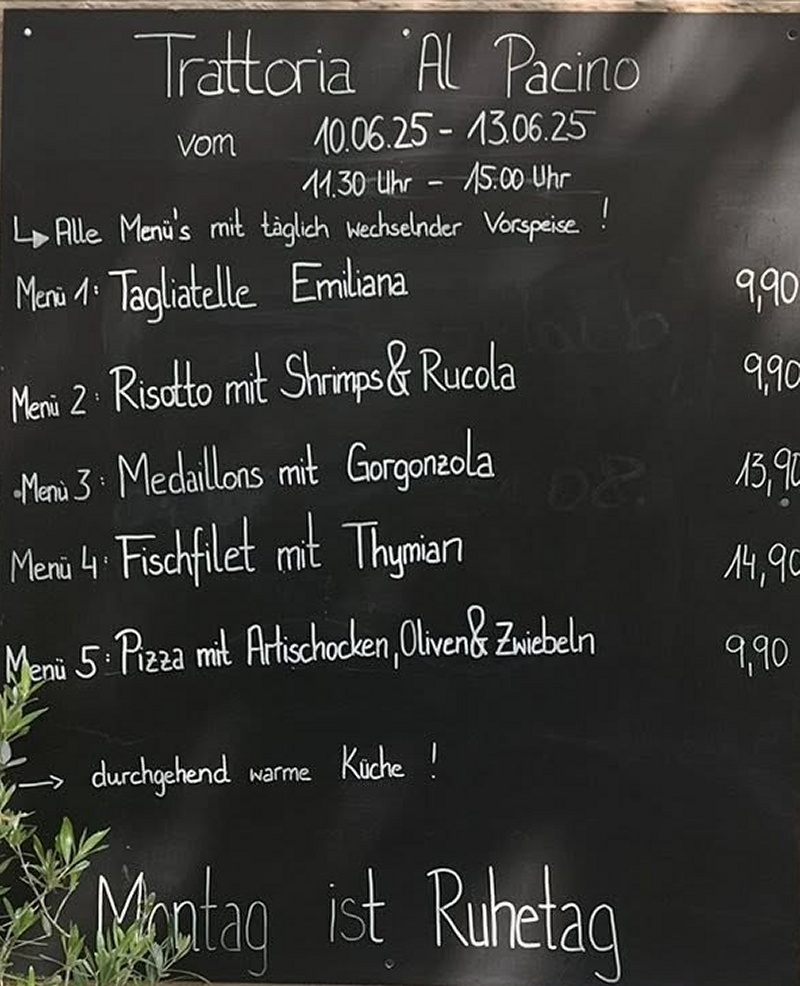 Trattoria Al Pacino
vom 10.06.25 - 13.06.25
11.30 Uhr - 15.00 Uhr
↳ Alle Menü's mit täglich wechselnder Vorspeise !
Menü 1: Tagliatelle Emiliana 9,90
Menü 2: Risotto mit Shrimps & Rucola 9,90
Menü 3: Medaillons mit Gorgonzola 13,90
Menü 4: Fischfilet mit Thymian 14,90
Menü 5: Pizza mit Artischocken, Oliven & Zwiebeln 9,90
→ durchgehend warme Küche !
Montag ist Ruhetag